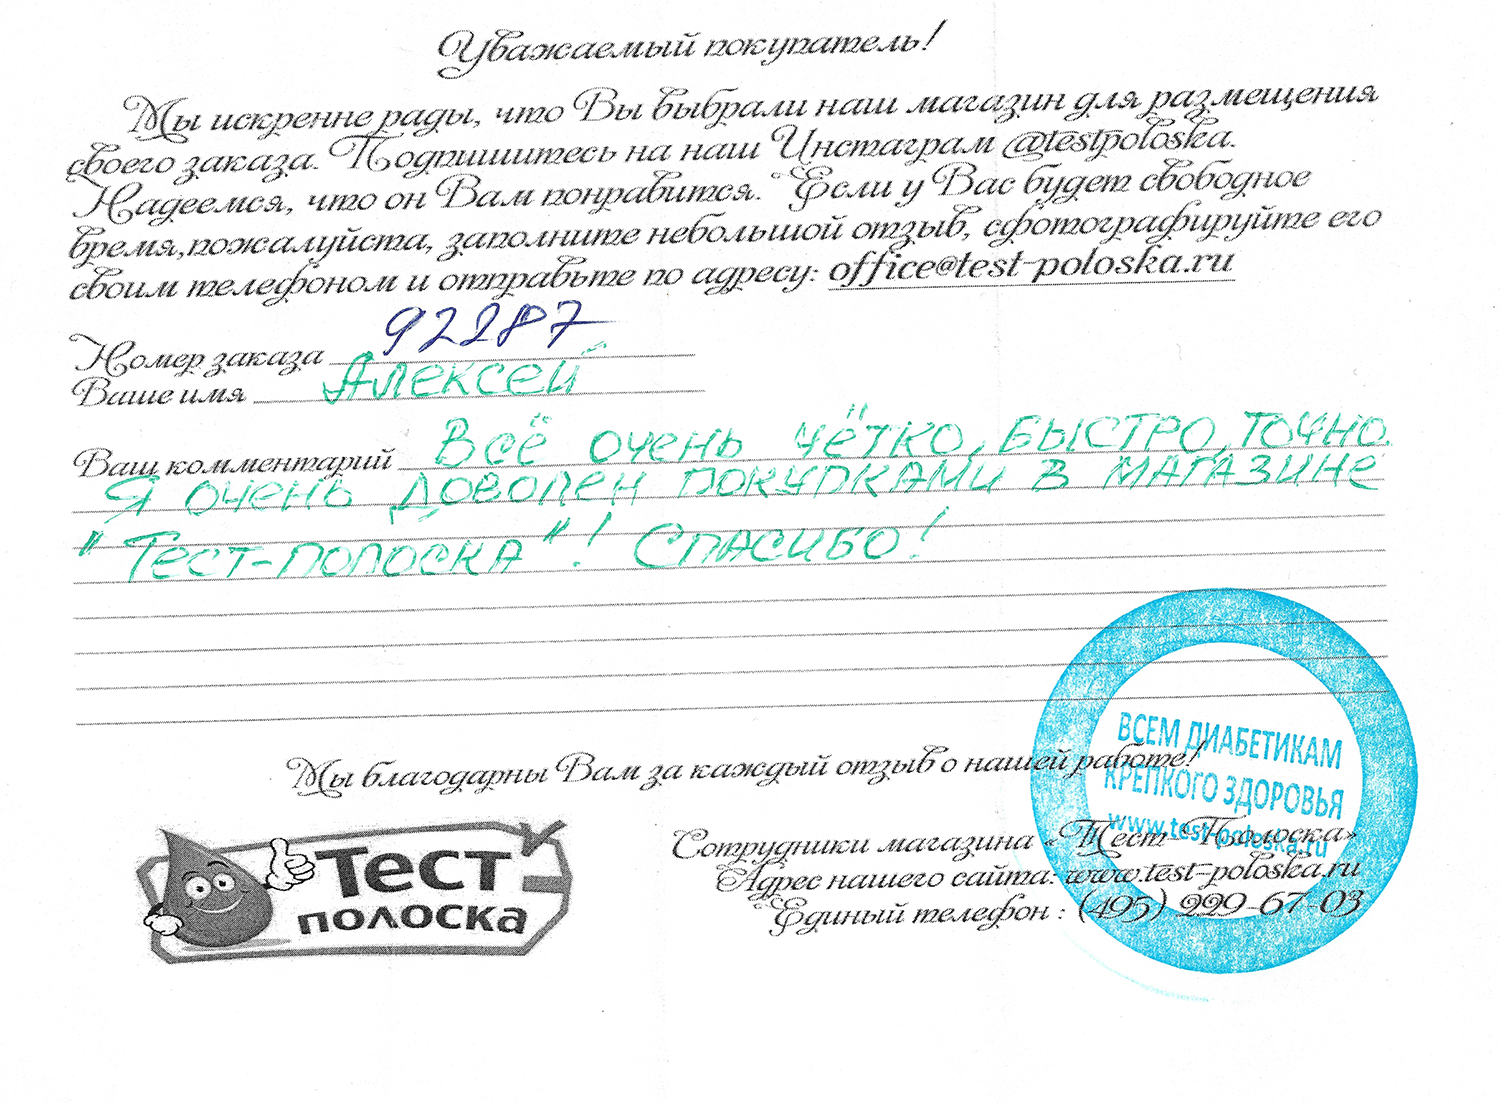 Уважаемый покупатель!
Мы искренне рады, что Вы выбрали наш магазин для размещения
своего заказа. Подпишитесь на наш Инстаграм @testpoloska.
Надеемся, что он Вам понравится. Если у Вас будет свободное
время,пожалуйста, заполните небольшой отзыв, сфотографируйте его
своим телефоном и отправьте по адресу: office@test-poloska.ru
Номер заказа 92287
Ваше имя Алексей
Ваш комментарий Всё очень чётко, быстро, точно.
Я очень доволен покупками в магазине
"Тест-полоска"! Спасибо!
Мы благодарны Вам за каждый отзыв о нашей работе!
ВСЕМ ДИАБЕТИКАМ
КРЕПКОГО ЗДОРОВЬЯ
www.test-poloska.ru
Тест
полоска
Сотрудники магазина «Тест-Полоска»
Адрес нашего сайта: www.test-poloska.ru
Единый телефон : (495) 229-67-03